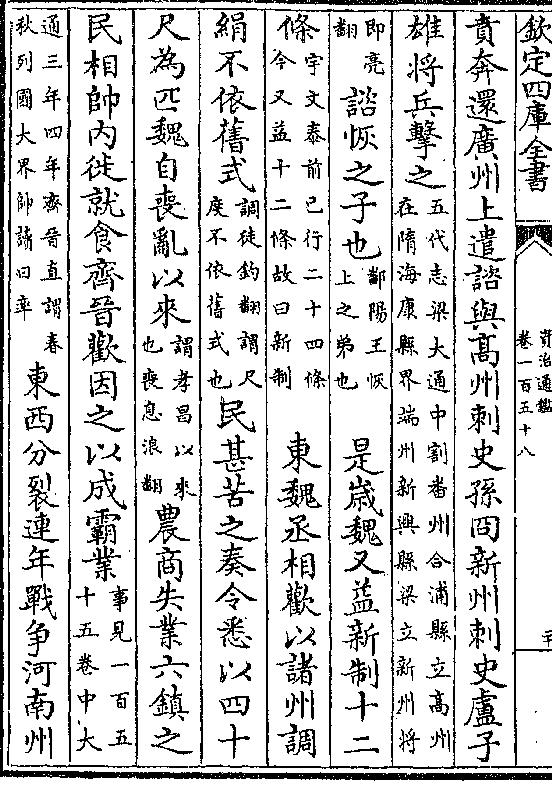 欽定四庫全書
資治通鑑
卷一百五十八
賁奔還廣州上遣諮與髙州刺史孫冏新州刺史盧子
雄将兵擊之五代志梁大通中割畨州合浦縣立高州在隋海康縣界端州新興縣梁立新州将
即亮翻諮恢之子也鄱陽王恢上之弟也是歳魏又益新制十二
條宇文泰前已行二十四條今又益十二條故曰新制東魏丞相歡以諸州調
絹不依舊式調徒釣翻謂尺度不依舊式也民甚苦之奏令悉以四十
尺為匹魏自喪亂以來謂孝昌以來也喪息浪翻農商失業六鎮之
民相帥内徙就食齊晉歡因之以成霸業事見一百五十五卷中大
通三年四年齊晉直謂春秋列國大界帥讀曰率東西分裂連年戰争河南州